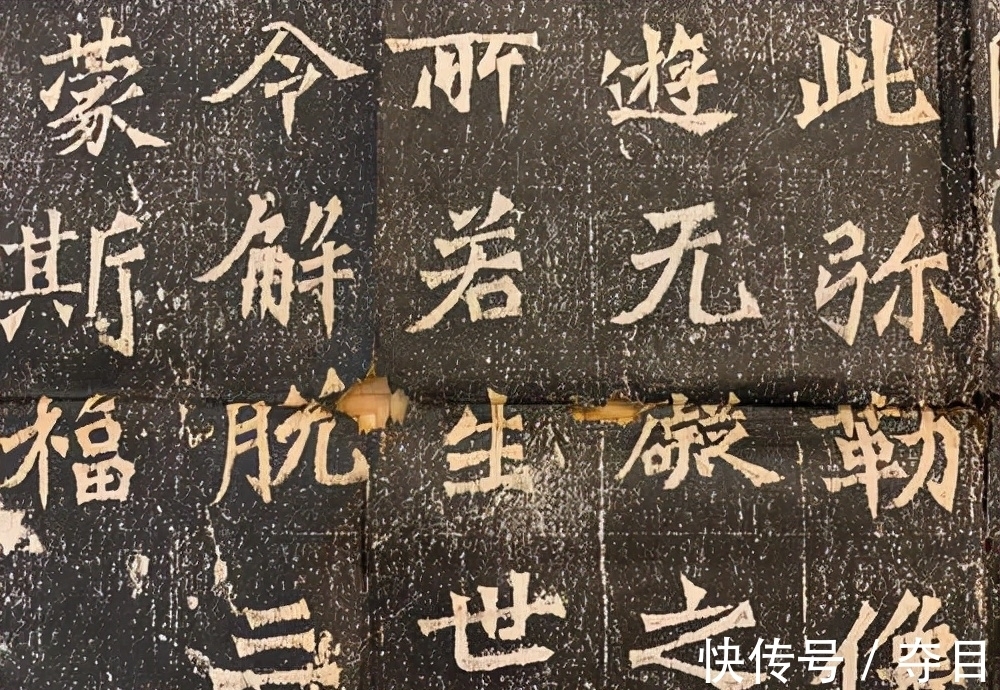 此弥勒像
遊无礙之
所若生世
令解脱三
蒙斯福
快传号 / 夺目